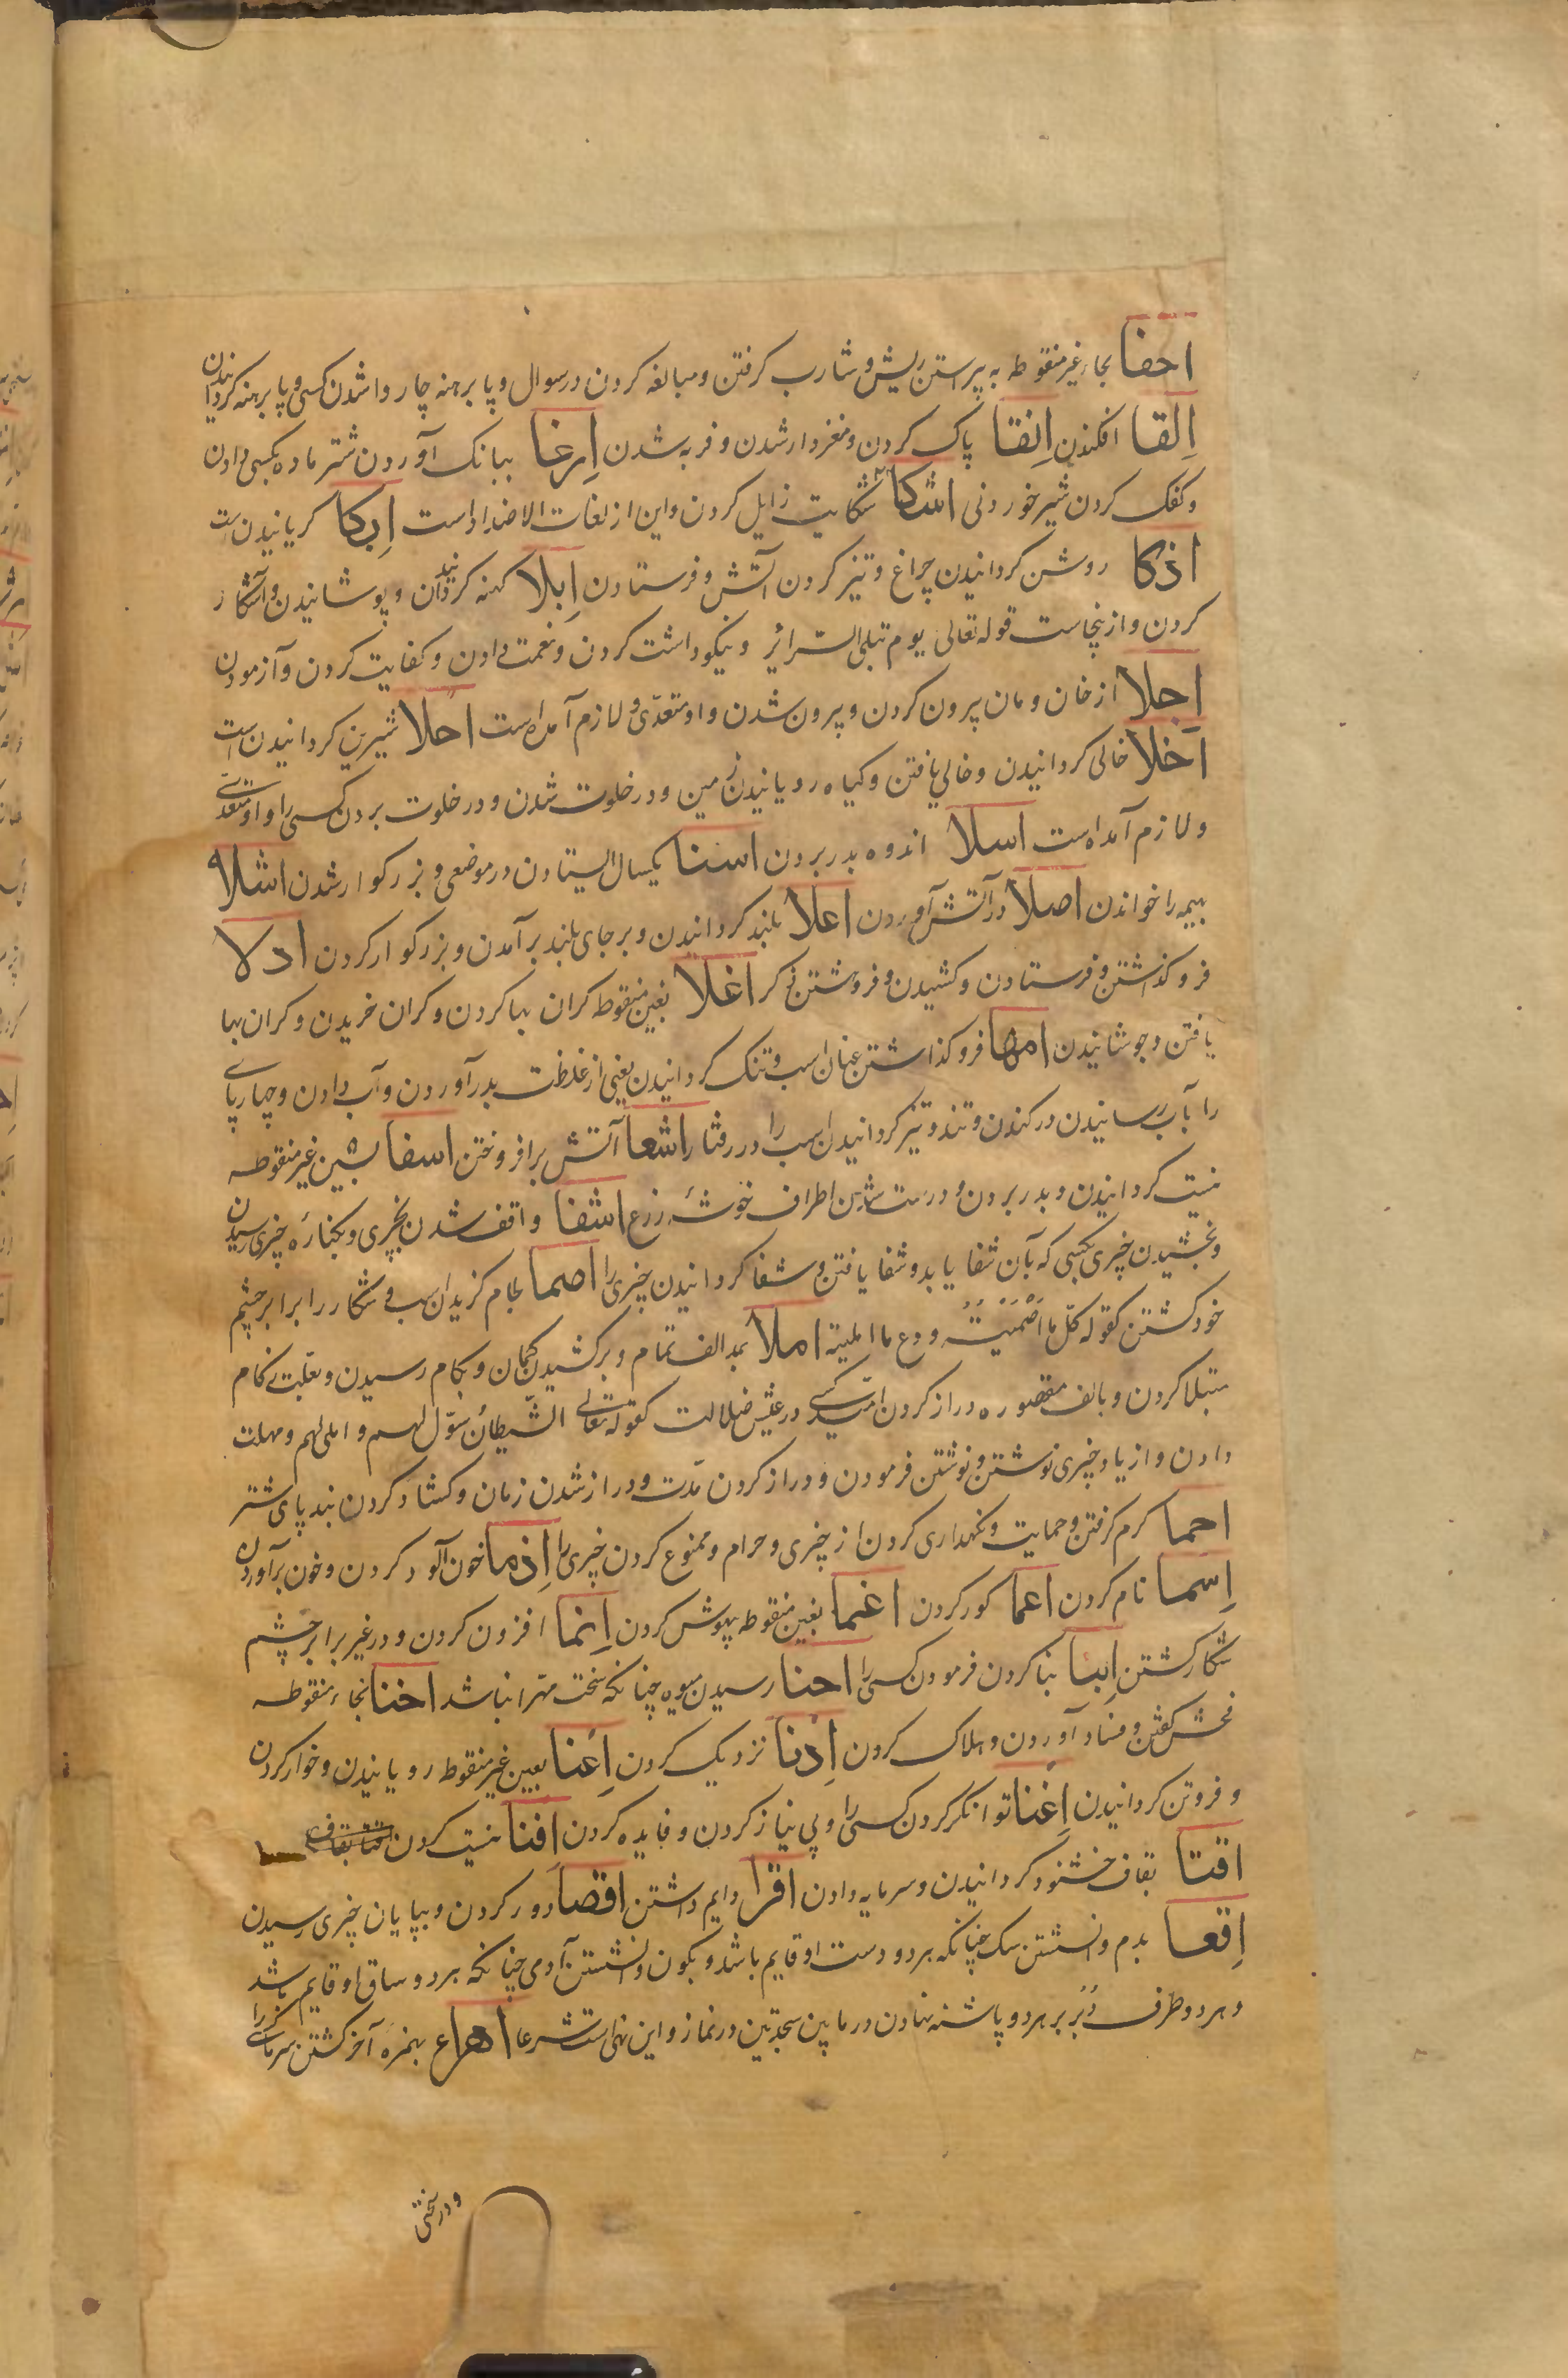 احفا بحاء غیر منقوطه به پیراستن ریش و شارب کرفتن و مبالغه کردن در سوال و پا برهنه چاروا شدن کسی و پا برهنه کردانیدن
اِلقا افکندن اِنقا پاک کردن و مغزدار شدن و فربه شدن اِرغا ببانک آوردن شتر ماده بکسی دادن
و کفک کردن شیر خوردنی اشکا شکایت زایل کردن و این از لغات الاضداد است اِبکا کریانیدن است
اذکا روشن کردانیدن چراغ و تیز کردن آتش و فرستادن اِبلا کهنه کردانیدن و پوشانیدن و آشکار
کردن و ازینجاست قوله تعالی یوم تبلی السّرائر و نیکو داشت کردن و نعمت دادن و کفایت کردن و آزمودن
اِجلا از خان و مان بیرون کردن و بیرون شدن و او متعدّی و لازم آمده است احلا شیرین کردانیدن است
اخلا خالی کردانیدن و خالی یافتن و کیاه رویانیدن زمین و در خلوت شدن و در خلوت بردن کسی را و او متعدّی
و لازم آمده است اسلا اندوه بدر بردن اسنا یکسال ایستادن در موضعی و بزرکوار شدن اشلا
بهیمه را خواندن اصلا در آتش آوردن اعلا بلند کردانیدن و بر جای بلند بر آمدن و بزرکوار کردن ادلا
فرو کذاشتن و فرستادن و کشیدن و فروهشتن ذکر اغلا بغین منقوطه کران بها کردن و کران خریدن و کران بها
یافتن و جوشانیدن امها فرو کذاشتن عنان اسب و تنک کردانیدن یعنی از غلظت بدر آوردن و آب دادن و چهارپای
را بآب رسانیدن در کندن و تند و تیز کردانیدن اسب را در رفتار اشعا آتش برافروختن اسفا بسین غیر منقوطه
نیست کردانیدن و بدر بردن و درست شدن اطراف خوشهٔ زرع اشفا واقف شدن بچیزی و بکنارهٔ چیزی رسیدن
و بخشیدن چیزی بکسی که بآن شفا یابد و شفا یافتن و شفا کردانیدن چیزی را اصما لجام کزیدن اسب و شکار را برابر چشم
خود کشتن کقوله کل ما اَصْمَیْتَ و دع ما انمیت املا بمد الف تمام و بر کشیدن کمان و بکام رسیدن و بعلت زکام
مبتلا کردن و بالف مقصوره دراز کردن امید کسی در عیش ضلالت کقوله تعالی الشّیطان سوّل لهم و املی لهم و مهلت
دادن و از یاد چیزی نوشتن و نوشتن فرمودن و دراز کردن مدّت و دراز شدن زمان و کشاد کردن بند پای شتر
احما کرم کرفتن و حمایت و نکهداری کردن از چیزی و حرام و ممنوع کردن چیزی را اِدما خون آلود کردن و خون برآوردن
اِسما نام کردن اعما کور کردن اغما بغین منقوطه بیهوش کردن اِنما افزون کردن و در غیر برابر چشم
شکار کشتن اِبنا بنا کردن فرمودن کسی را احنا رسیدن میوه چنانکه سخت مهرا نباشد اخنا بخاء منقوطه
فحش کفتن و فساد آوردن و هلاک کردن اِدنا نزدیک کردن اِعنا بعین غیر منقوطه رویانیدن و خوار کردن
و فروتن کردانیدن اِغنا توانکر کردن کسی را و بی نیاز کردن و فایده کردن افنا نیست کردن
اقنا بقاف خشنود کردانیدن و سرمایه دادن اقرا دایم داشتن اقصا دور کردن و بپایان چیزی رسیدن
اِقعا بدم وانشستن سک چنانکه هر دو دست او قایم باشد و بکون وانشستن آدمی چنانکه هر دو ساق او قایم باشد
و هر دو طرف دُبُر بر هر دو پاشنه نهادن در ما بین سجدتین در نماز و این نهی است شرعا اهراء بهمزه آخر کشتن سرما کسی را
و در پختن